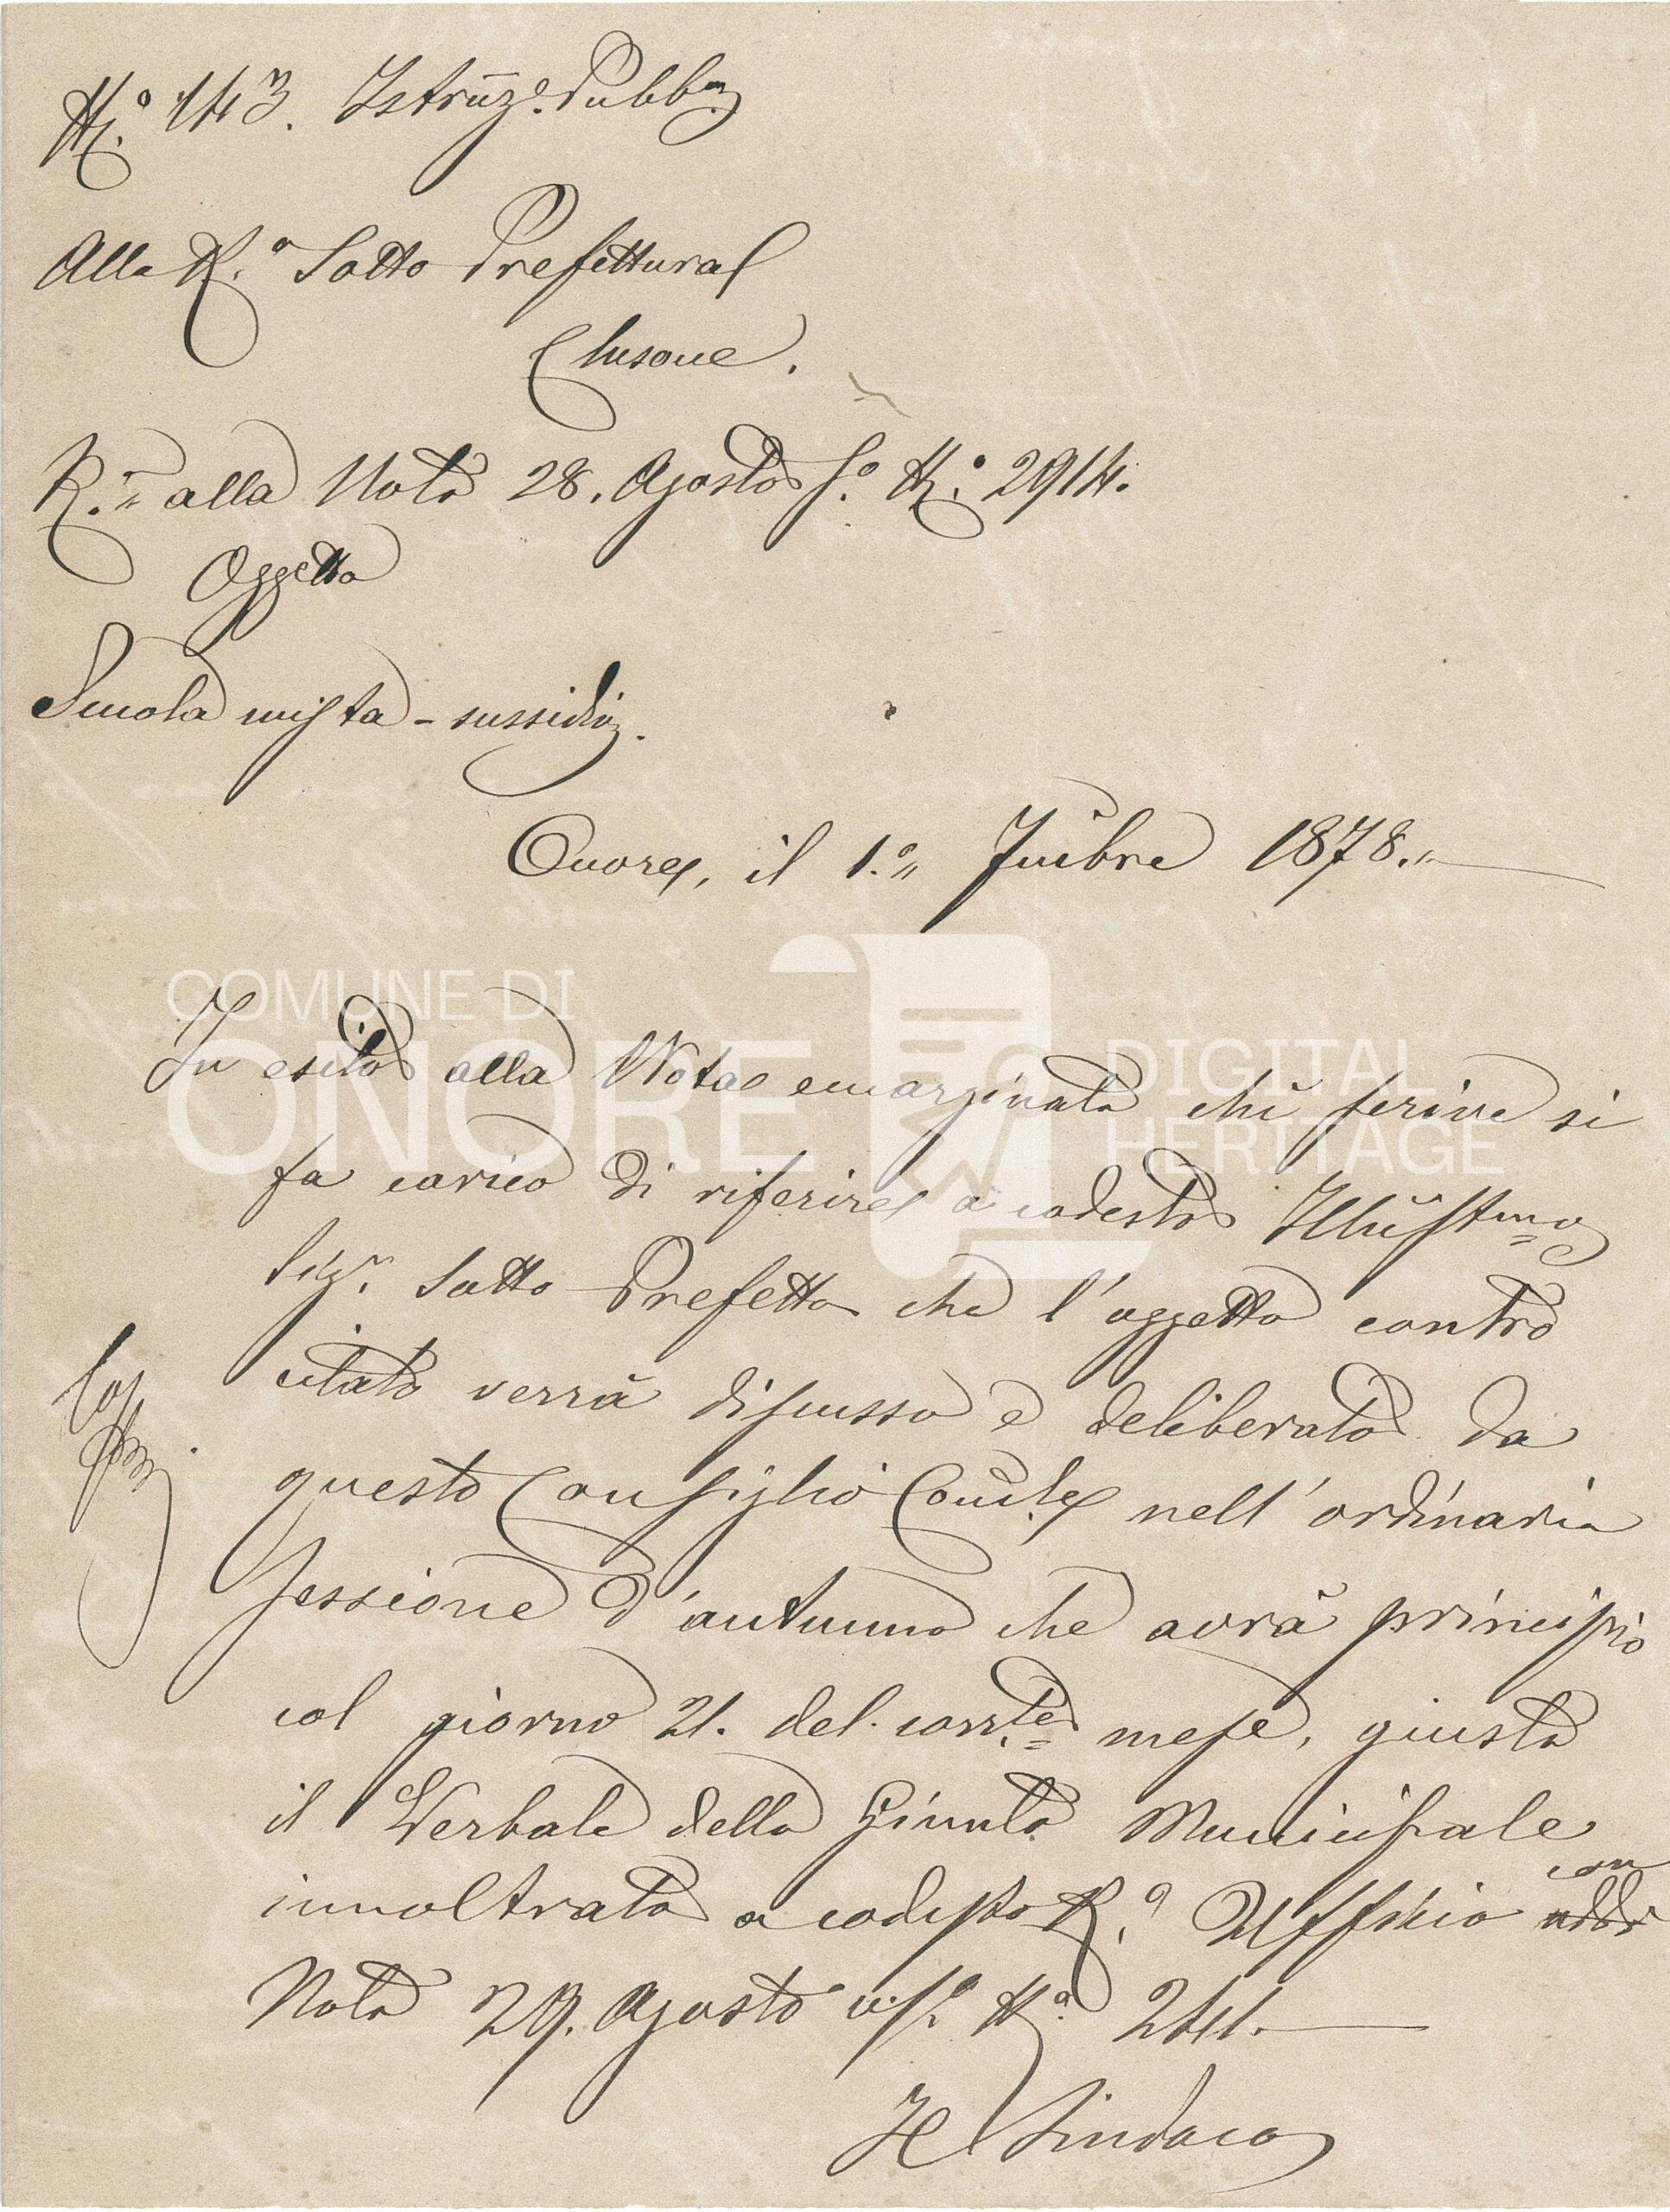 N.° 143. Istruz.e Pubb.a
Alla R.a Sotto Prefettura
Clusone.
R.a alla Nota 28. Agosto s.° N.° 2914.
Oggetto
Scuola mista - sussidio.
Onore, il 1.° 7mbre 1878.
COMUNE DI
ONORE
DIGITAL
HERITAGE
In esito alla Nota emarginata chi scrive si
fa carico di riferire a codesto Illustmo
Sigr. Sotto Prefetto che l'oggetto contro
citato verrà discusso e deliberato da
questo Consiglio Comle nell'ordinaria
sessione d'autunno che avrà principio
col giorno 21. del corrte mese, giusta
il Verbale della Giunta Municipale
innoltrato a codesto R.° Uffficio con
Nota 29. Agosto N.° 241.
Il Sindaco